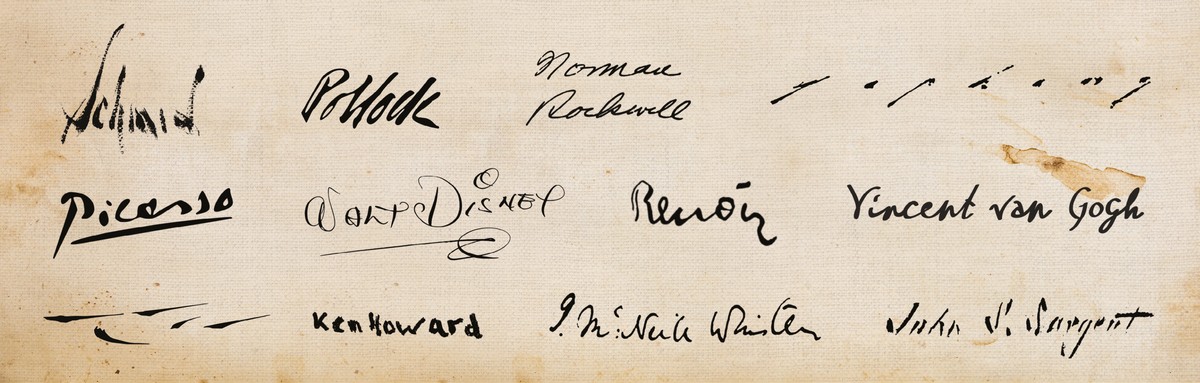 Schmid Pollock Norman
Rockwell
Picasso WALT DISNEY Renoir Vincent van Gogh
Ken Howard J. Mc. Neill Whistler John S. Sargent